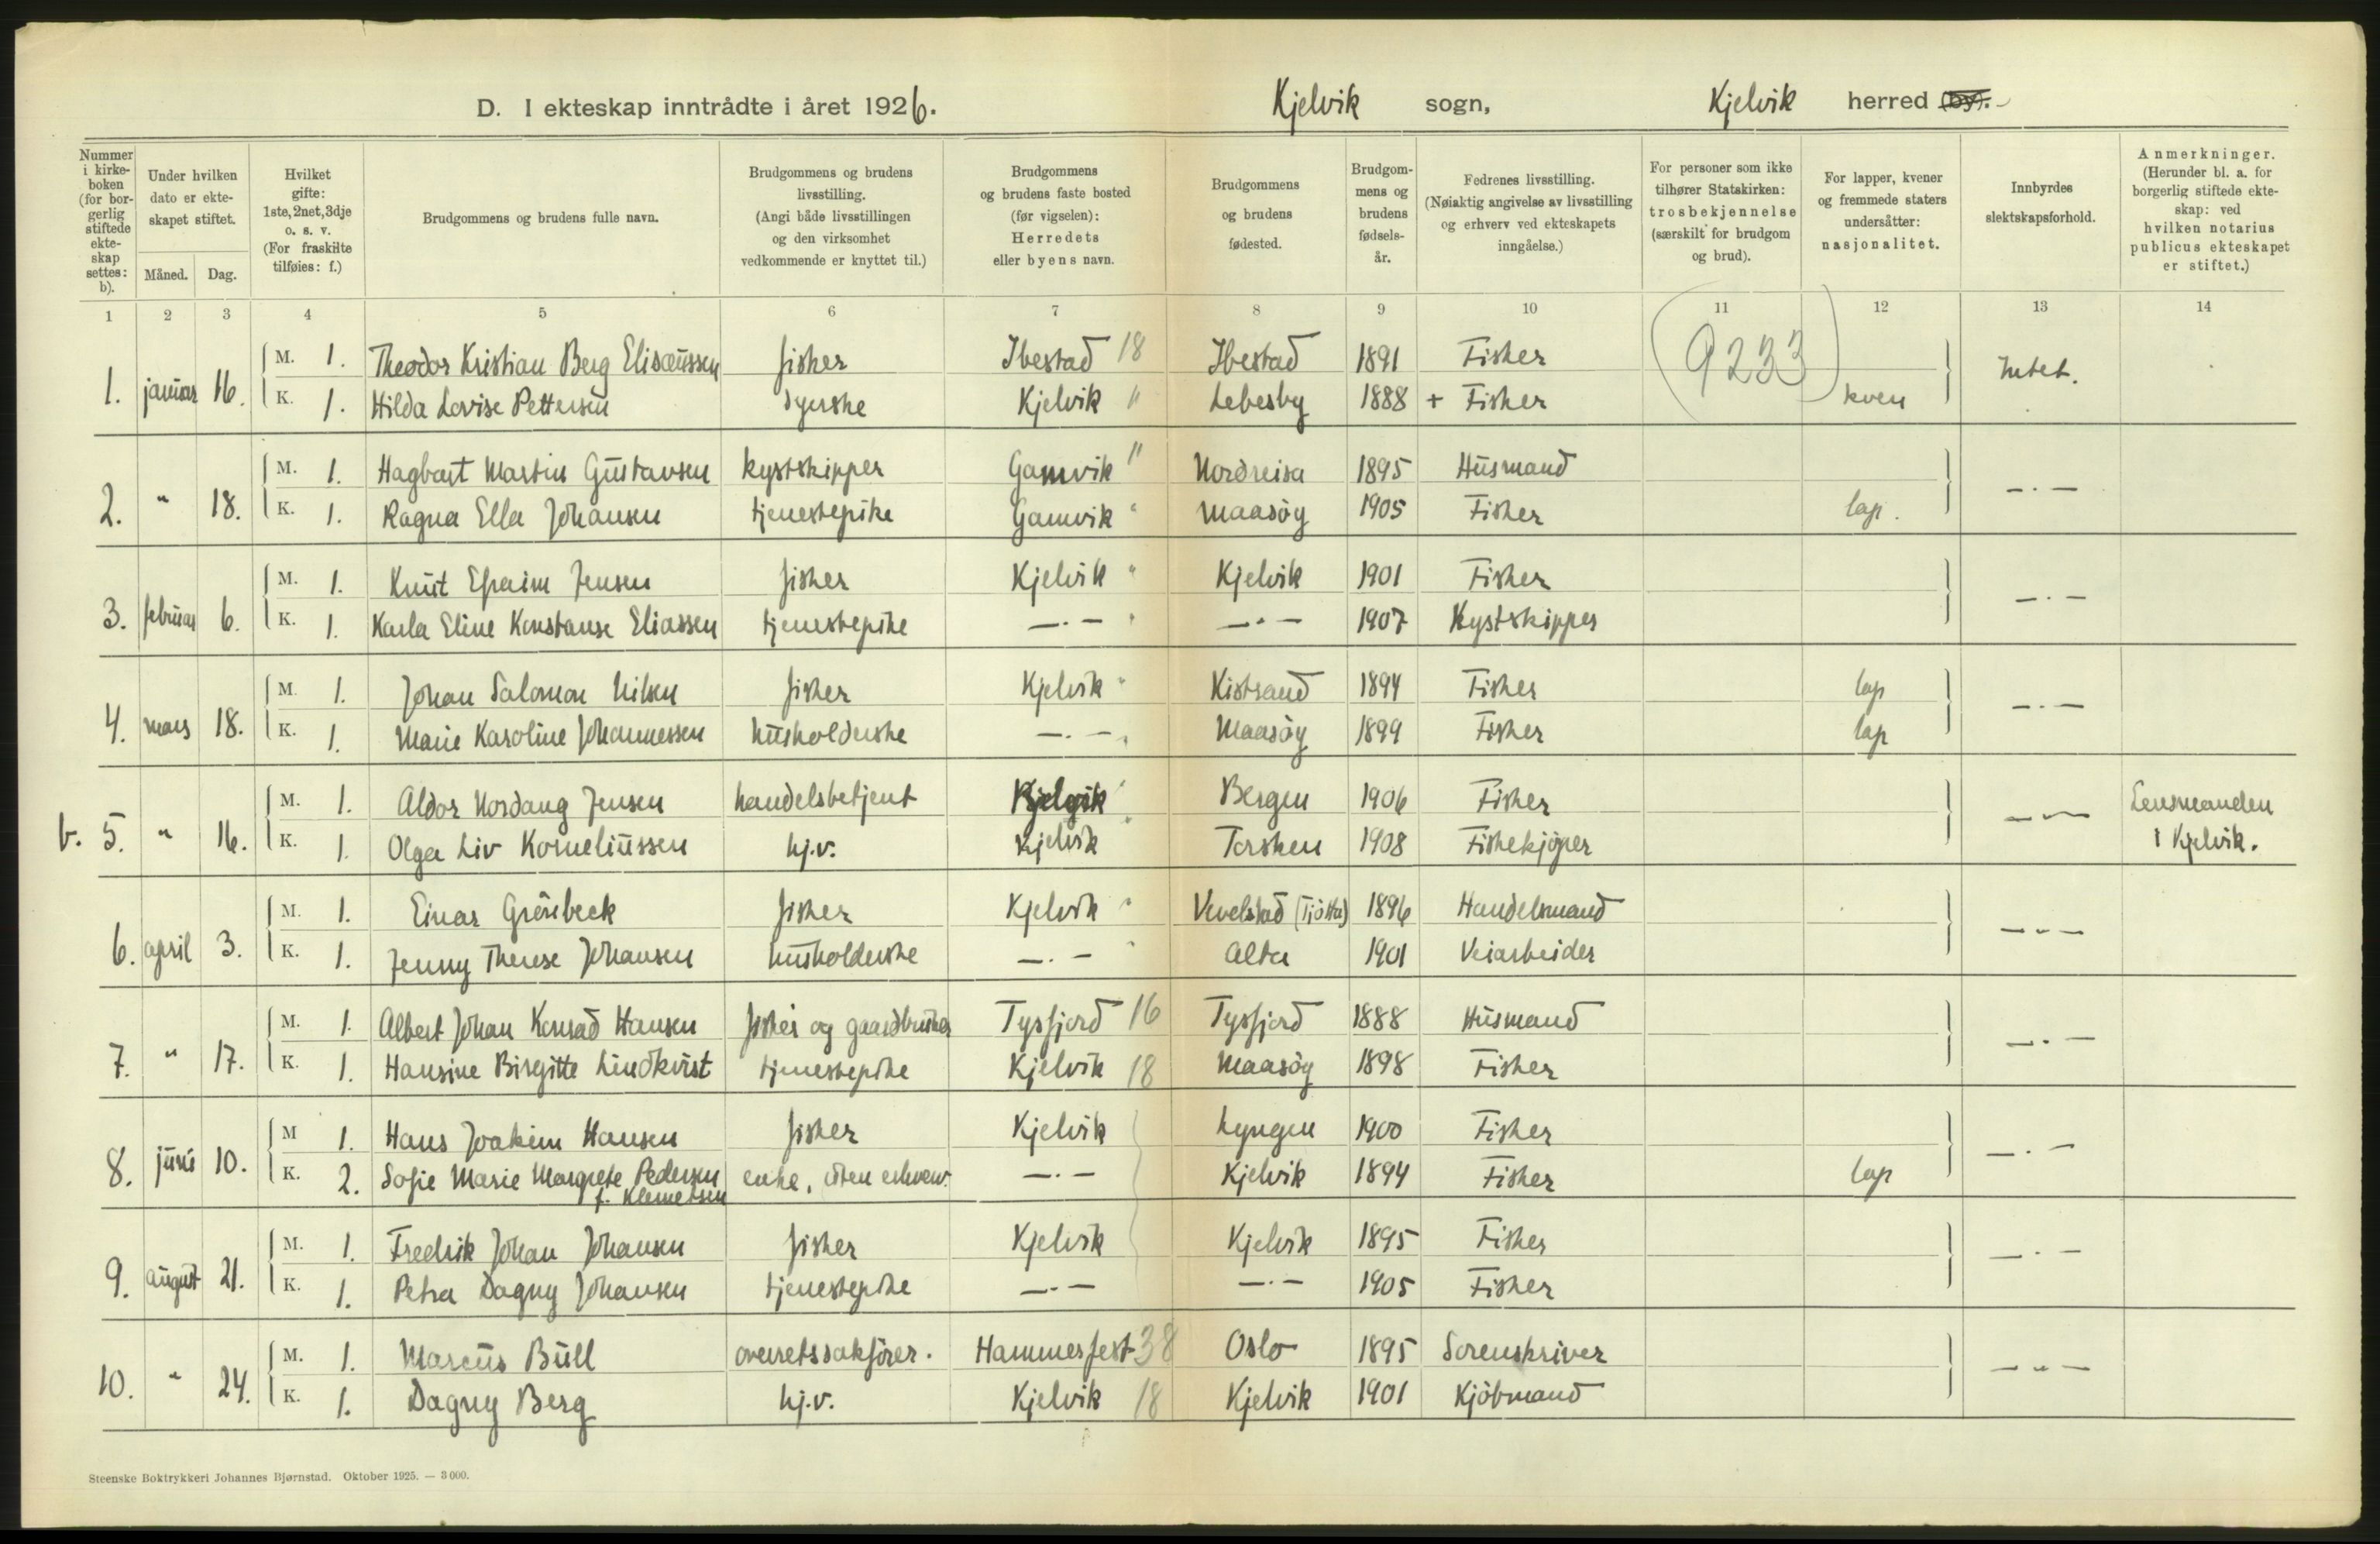 D. I ekteskap inntrådte i året 1926. Kjelvik sogn, Kjelvik herred (by).
Nummer i kirkeboken (for borgerlig stiftede ekteskap settes: b).
Under hvilken dato er ekteskapet stiftet.
Måned. Dag.
Hvilket gifte: 1ste, 2net, 3dje o. s. v. (For fraskilte tilføies: f.)
Brudgommens og brudens fulle navn.
Brudgommens og brudens livsstilling. (Angi både livsstillingen og den virksomhet vedkommende er knyttet til.)
Brudgommens og brudens faste bosted (før vigselen): Herredets eller byens navn.
Brudgommens og brudens fødested.
Brudgommens og brudens fødselsår.
Fedrenes livsstilling. (Nøiaktig angivelse av livsstilling og erhverv ved ekteskapets inngåelse.)
For personer som ikke tilhører Statskirken: trosbekjennelse (særskilt for brudgom og brud).
For lapper, kvener og fremmede staters undersåtter: nasjonalitet.
Innbyrdes slektskapsforhold.
Anmerkninger. (Herunder bl. a. for borgerlig stiftede ekteskap: ved hvilken notarius publicus ekteskapet er stiftet.)
1 2 3 4 5 6 7 8 9 10 11 12 13 14
(9233)
1. januar 16. M. 1. Theodor Kristian Berg Elisæussen fisher Ibestad 18 Ibestad 1891 Fisher Intet.
K. 1. Hilda Lovise Pettersen syerske Kjelvik " Lebesby 1888 + Fisher kven
2. " 18. M. 1. Hagbart Martin Gustavsen kystskipper Gamvik " Nordreisa 1895 Husmand —.—
K. 1. Ragna Ella Johansen tjenestepike Gamvik " Maasöy 1905 Fisker lap.
3. februar 6. M. 1. Knut Efraim Jensen fisker Kjelvik " Kjelvik 1901 Fisker —.—
K. 1. Karla Eline Konstanse Eliassen tjenestepike —.— " —.— 1907 Kystskipper
4. mars 18. M. 1. Johan Salomon Nilsen fisker Kjelvik " Kistrand 1894 Fisker lap —.—
K. 1. Marie Karoline Johannessen husholderske —.— " Maasöy 1899 Fisker lap
b. 5. " 16. M. 1. Aldor Nordang Jensen handelsbetjent Kjelvik " Bergen 1906 Fisker —.— Lensmanden
K. 1. Olga Liv Korneliussen hj.v. Kjelvik " Torsken 1908 Fiskekjöper i Kjelvik.
6. april 3. M. 1. Einar Grönbeck fisker Kjelvik " Vevelstad (Tjötta) 1896 Handelsmand —.—
K. 1. Jenny Therese Johansen husholderske —.— " Alta 1901 Veiarbeider
7. " 17. M. 1. Albert Johan Konrad Hansen fisker og gaardbruker Tysfjord 16 Tysfjord 1888 Husmand —.—
K. 1. Hansine Birgitte Lindkvist tjenestepike Kjelvik 18 Maasöy 1898 Fisker
8. juni 10. M 1. Hans Joakim Hansen fisker Kjelvik Lyngen 1900 Fisker —.—
K. 2. Sofie Marie Margrete Pedersen enke, uten erhverv —.— Kjelvik 1894 Fisker lap
f. Klemetsen
9. august 21. M. 1. Fredrik Johan Johansen fisker Kjelvik Kjelvik 1895 Fisker —.—
K. 1. Petra Dagny Johansen tjenestepike —.— —.— 1905 Fisker
10. " 24. M. 1. Marcus Bull overretssakförer. Hammerfest 38 Oslo 1895 Sorenskriver —.—
K. 1. Dagny Berg hj.v. Kjelvik 18 Kjelvik 1901 Kjöbmand
Steenske Boktrykkeri Johannes Bjørnstad. Oktober 1925. — 3 000.